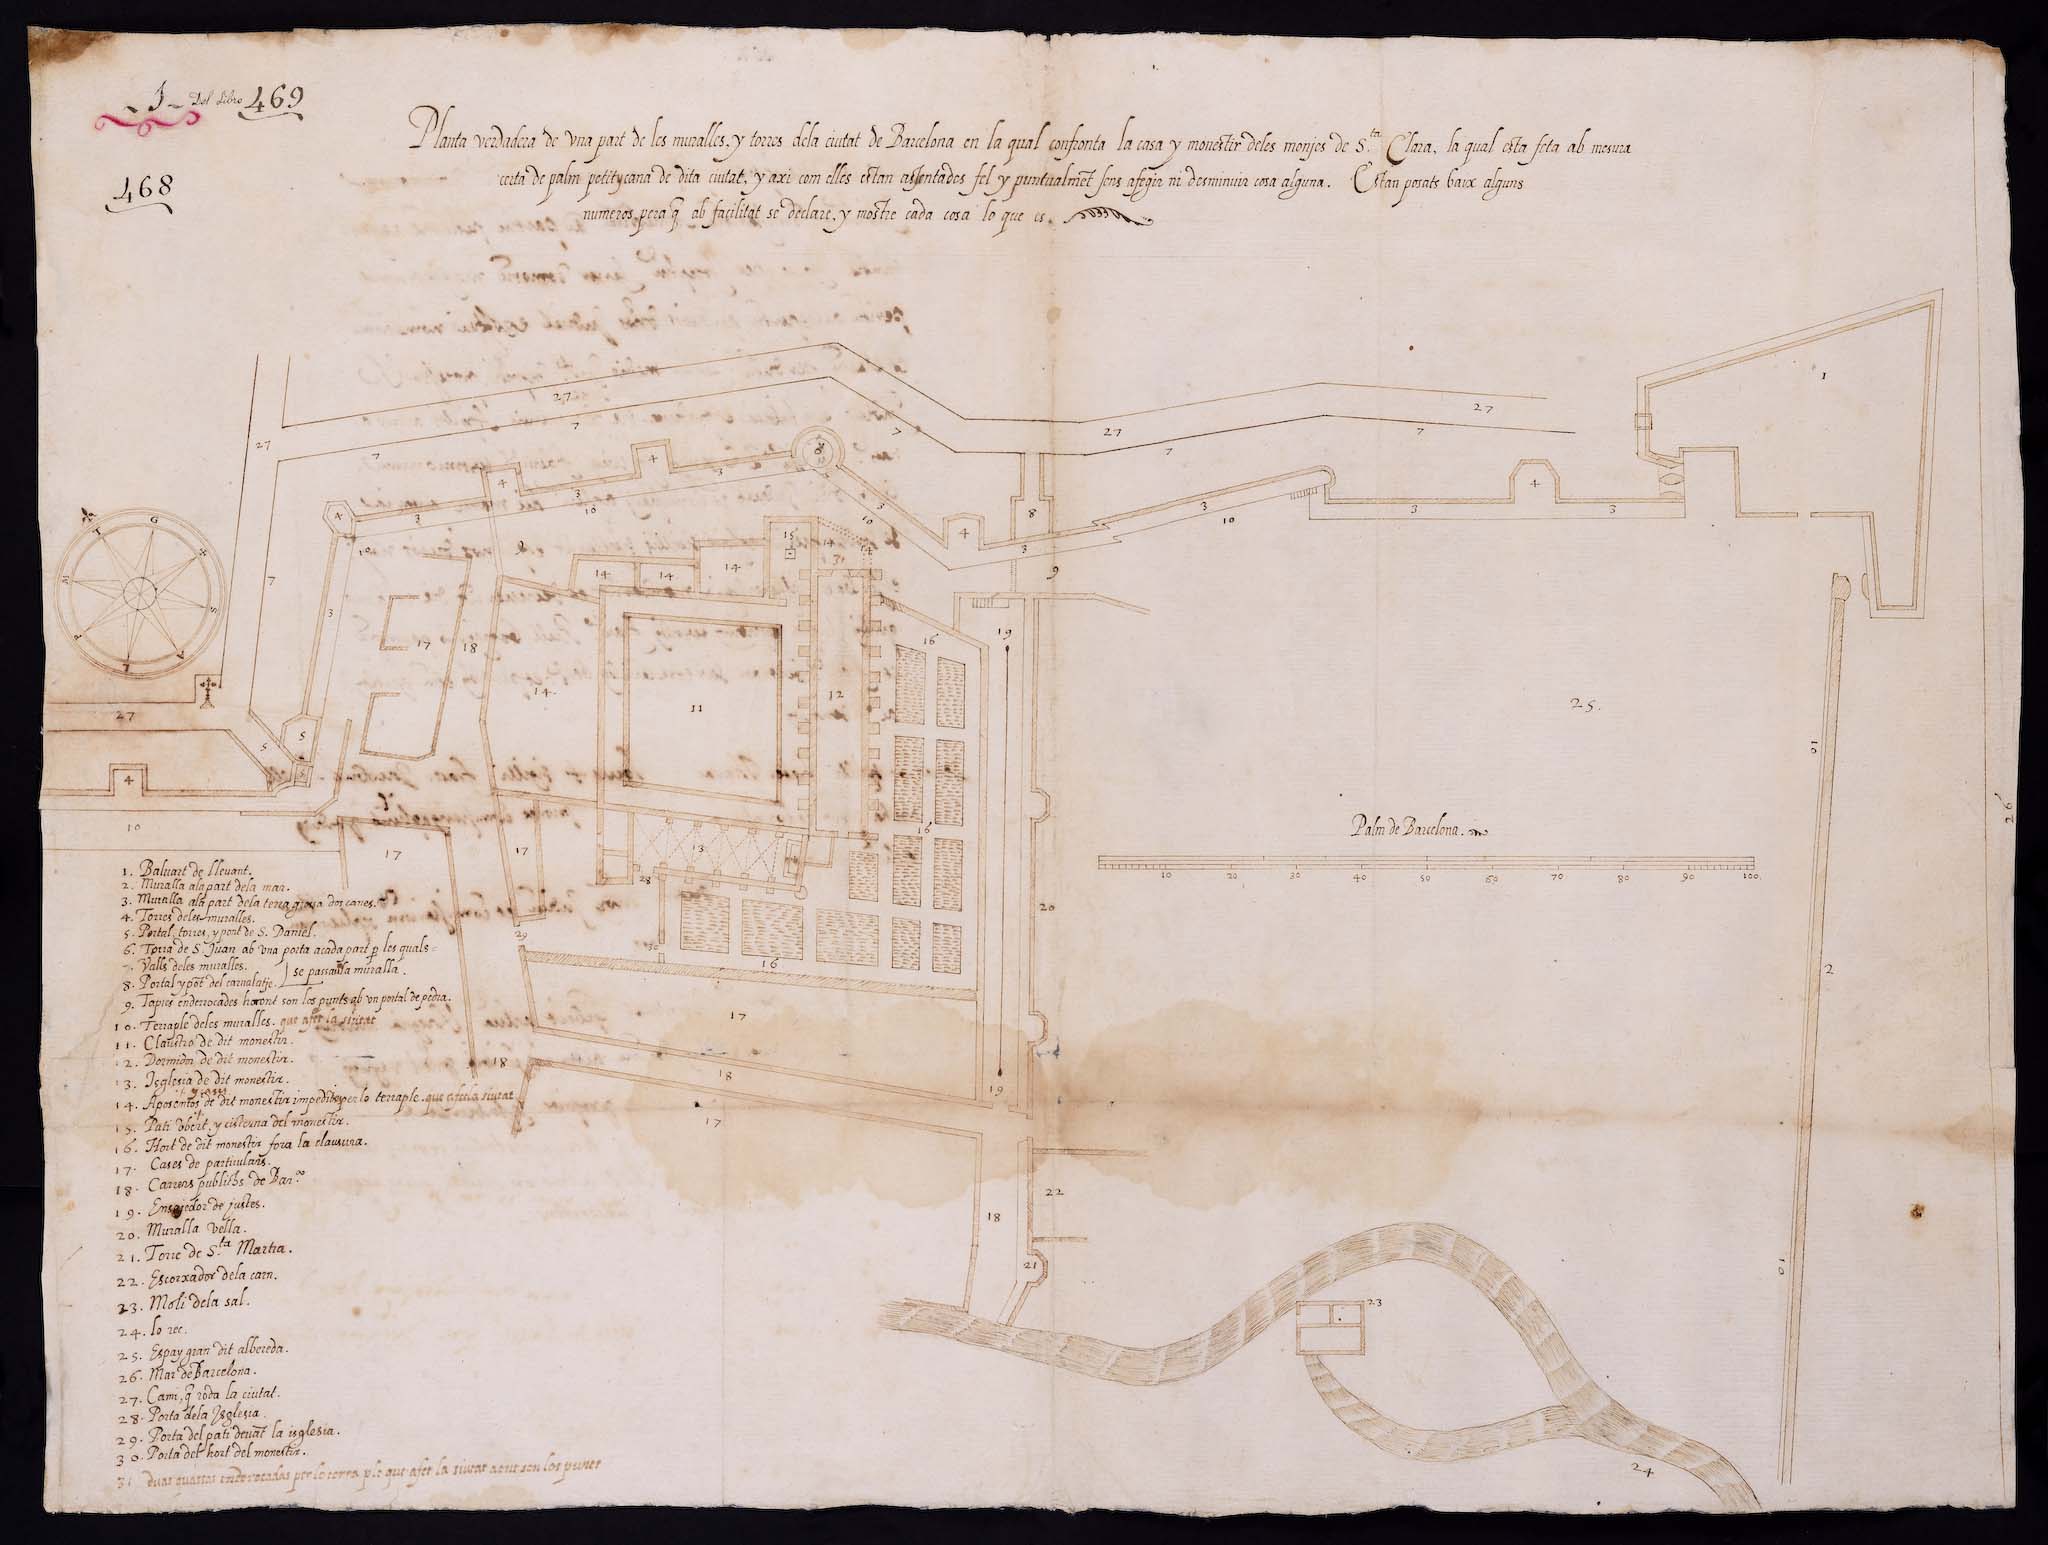 1 Del Libro 469
468
Planta verdadera de vna part de les muralles, y torres dela ciutat de Barcelona en la qual confronta la casa y monestir deles monjes de S.ta Clara, la qual esta feta ab mesura
certa de palm petitycana de dita ciutat, y axi com elles estan assentades fel y puntualmẽt sens afegir ni desminuir cosa alguna. Estan posats baix alguns
numeros, pera q̃ ab facilitat se declare, y mostre cada cosa lo que es.
Palm de Barcelona.
10 20 30 40 50 60 70 80 90 100
1. Baluart de llevant.
2. Muralla ala part dela mar.
3. Muralla ala part dela terra
4. Torres deles muralles.
5. Portal, torres, y pont de S. Daniel.
6. Torra de S. Juan ab vna porta acada part p les quals
7. Valls deles muralles. se passa la muralla.
8. Portal y põt del carnalatje.
9. Tapies enderrocades hõront son los punts ab vn portal de pedra.
10. Terraple deles muralles. que afet la siutat
11. Claustro de dit monestir.
12. Dormidor de dit monestir.
13. Isglesia de dit monestir.
14. Aposentos de dit monestir impedits per lo terraple. que afet la siutat
15. Pati vbert, y cisterna del monestir.
16. Hort de dit monestir fora la clausura.
17. Cases de particulars.
18. Carrers publichs de Bar.na
19. de justes.
20. Muralla vella.
21. Torre de S.ta Martra.
22. Escorxador dela carn.
23. Moli dela sal.
24. lo rec.
25. Espay gran dit albereda.
26. Mar de Barcelona.
27. Cami, q̃ roda la ciutat.
28. Porta dela Isglesia.
29. Porta del pati deuãt la isglesia.
30. Porta del hort del monestir.
31 duas quassas enderocadas per lo terra ple que afet la siutat aont son los punts